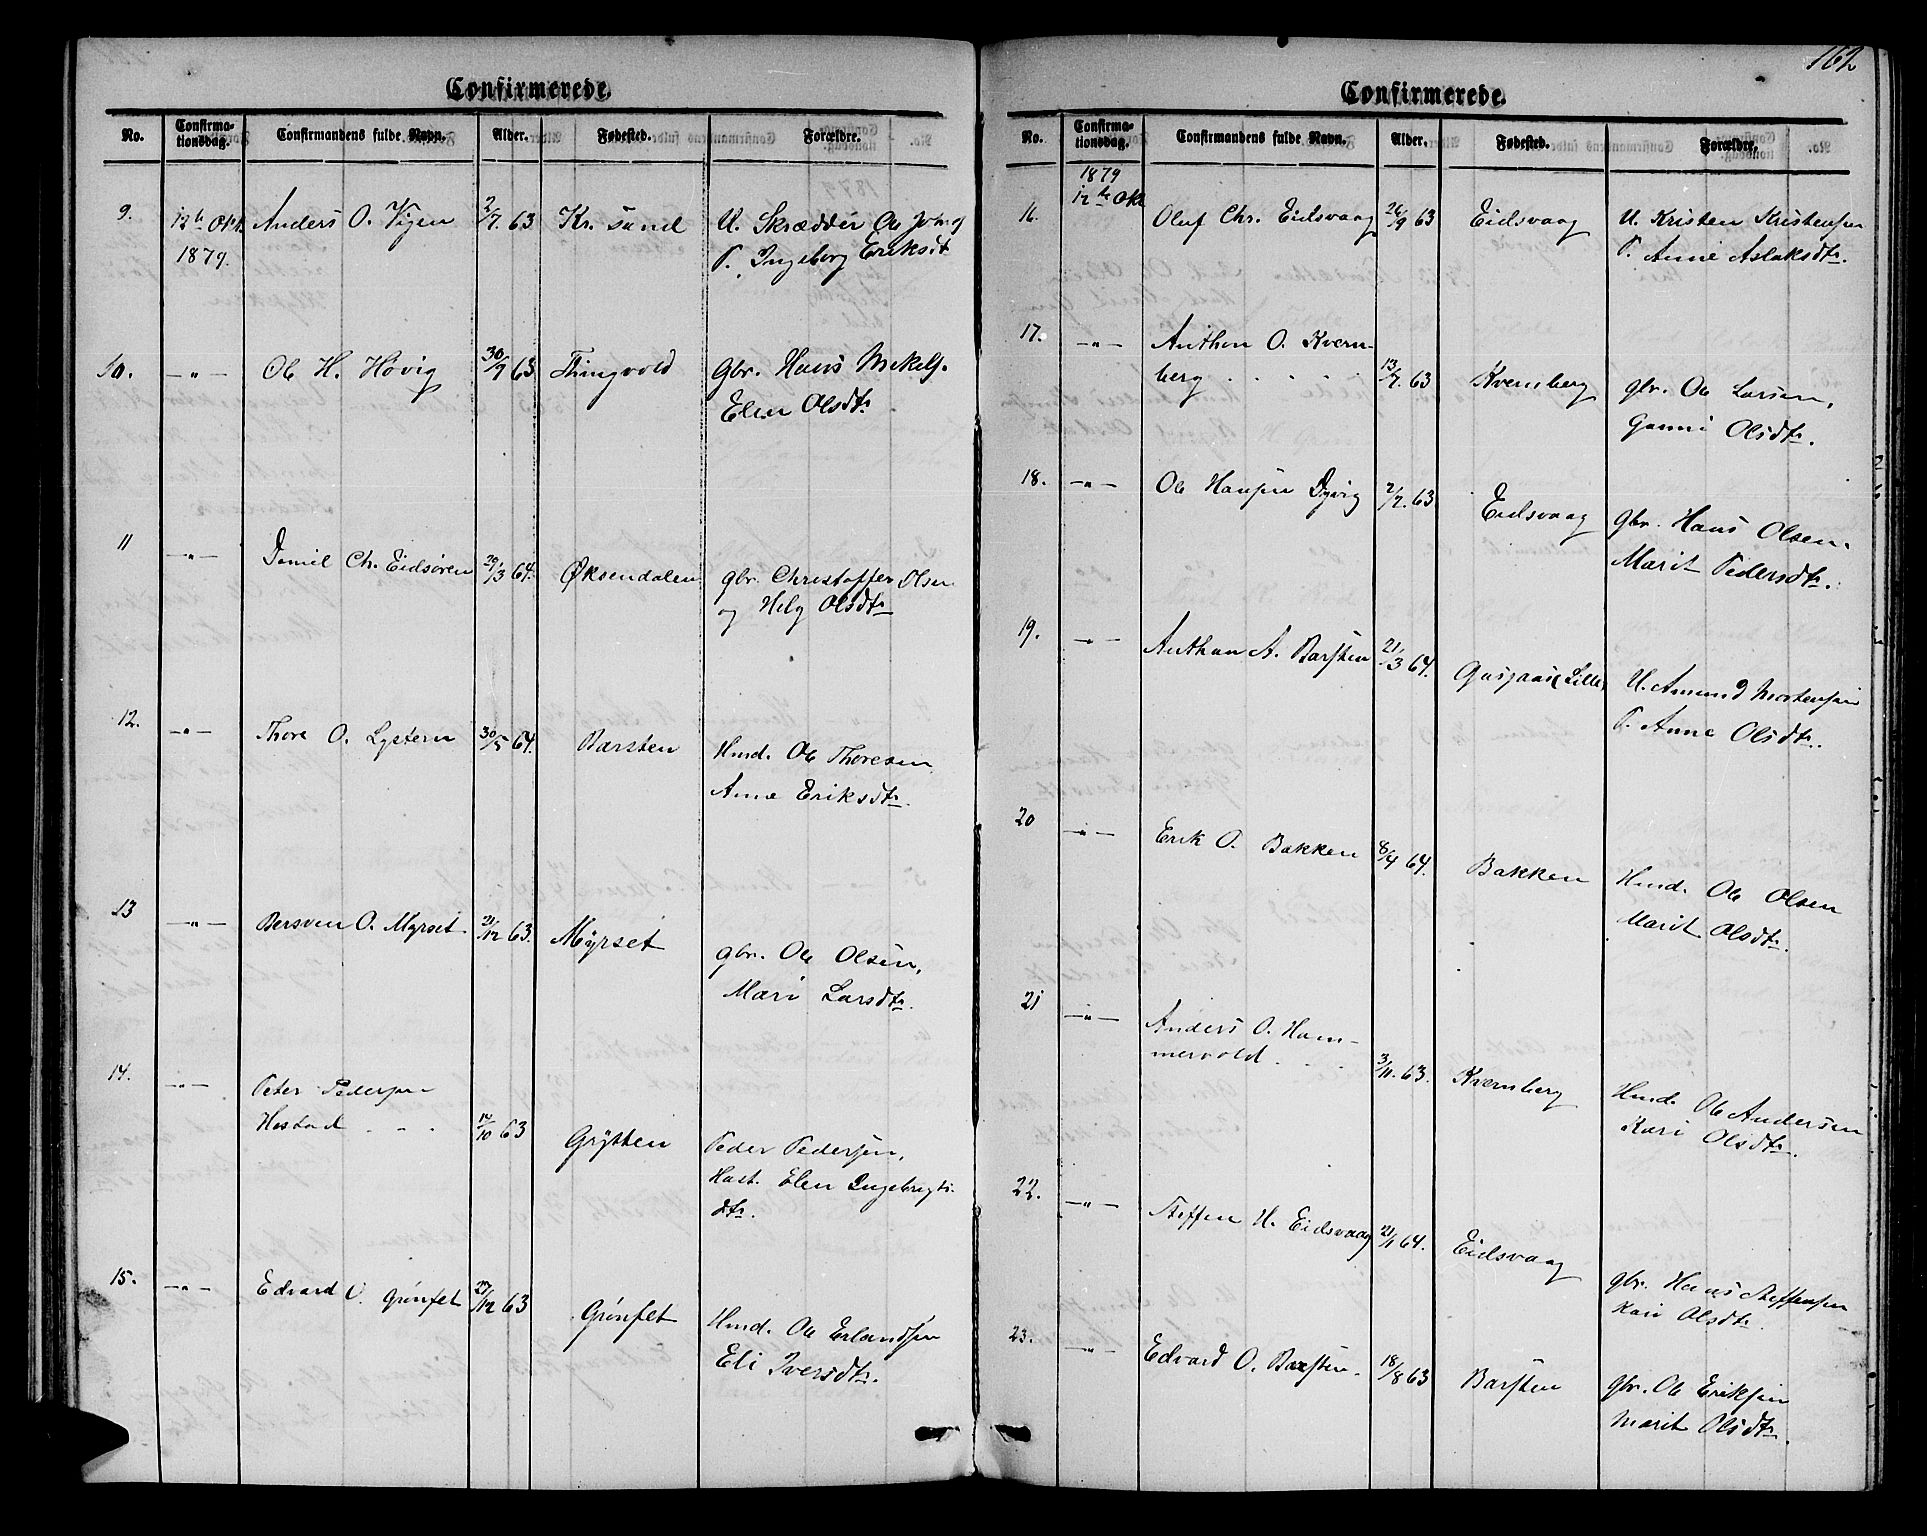 162
Confirmerede.
No. Confirma-tionsdag. Confirmandens fulde Navn. Alder. Fødested. Forældre.
9. 12te Okt. Anders O. Vigen 2/7. 63 Kr. sund U. Skrædder Ole Johns
1879. P. Ingeborg Eriksdtr
10. —"— Ole H. Høvig 30/9 63 Thingvold gbr. Hans Mikels.
Elen Olsdtr
11 —"— Daniel Ch. Eidsøren 29/3 64. Øksendalen gbr. Christoffer Olsen
og Helg Olsdtr
12. —"— Thore O. Lystern 30/5 64. Barsten Hmd. Ole Thoresen
Anne Eriksdtr.
13 —"— Bersven O. Myrset 21/12 63. Myrset gbr. Ole Olsen,
Mari Larsdtr.
14. —"— Peter Pedersen
Hestad . . . 12/10 63 Grytten Peder Pedersen,
Hast. Elen Ingebrigts-
dtr.
15. —"— Edvard O. Grønfet 27/12 63 Grønfet Hmd. Ole Erlandsen
Eli Iversdtr.
Confirmerede.
No. Confirma-tionsdag. Confirmandens fulde Navn. Alder. Fødested. Forældre.
1879
16. 12te Okt Oluf Chr. Eidsvaag 26/9 63 Eidsvaag U. Kristen Kristensen
P. Anne Aslaksdtr.
17. —"— Anthon O. Kvern-
berg . . . . . 13/7. 63 Kvernberg gbr. Ole Larsen,
Gunni Olsdtr.
18. —"— Ole Hansen Dyvig 2/2. 63 Eidsvaag gbr. Hans Olsen.
Marit Pedersdtr.
19. —"— Anthon A. Barsten 21/3 64. Gusjaas (Lille) U. Amund Mortensen
P. Anne Olsdtr.
20 —"— Erik O. Bakken 8/4 64. Bakken Hmd. Ole Olsen
Marit Olsdtr.
21 —"— Anders O. Ham-
mervold . . . 3/11. 63. Kvernberg Hmd. Ole Andersen
Kari Olsdtr.
22. —"— Steffen H. Eidsvaag 21/1 64. Eidsvaag gbr. Hans Steffensen
Kari Olsdtr.
23. —"— Edvard O. Barsten. 18/8 63 Barsten gbr. Ole Eriksen
Marit Olsdtr.